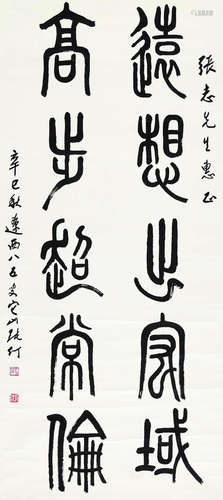 張志先生惠正
遠想出宏域
高步超常倫
辛巳秋遼西八五叟它山張仃